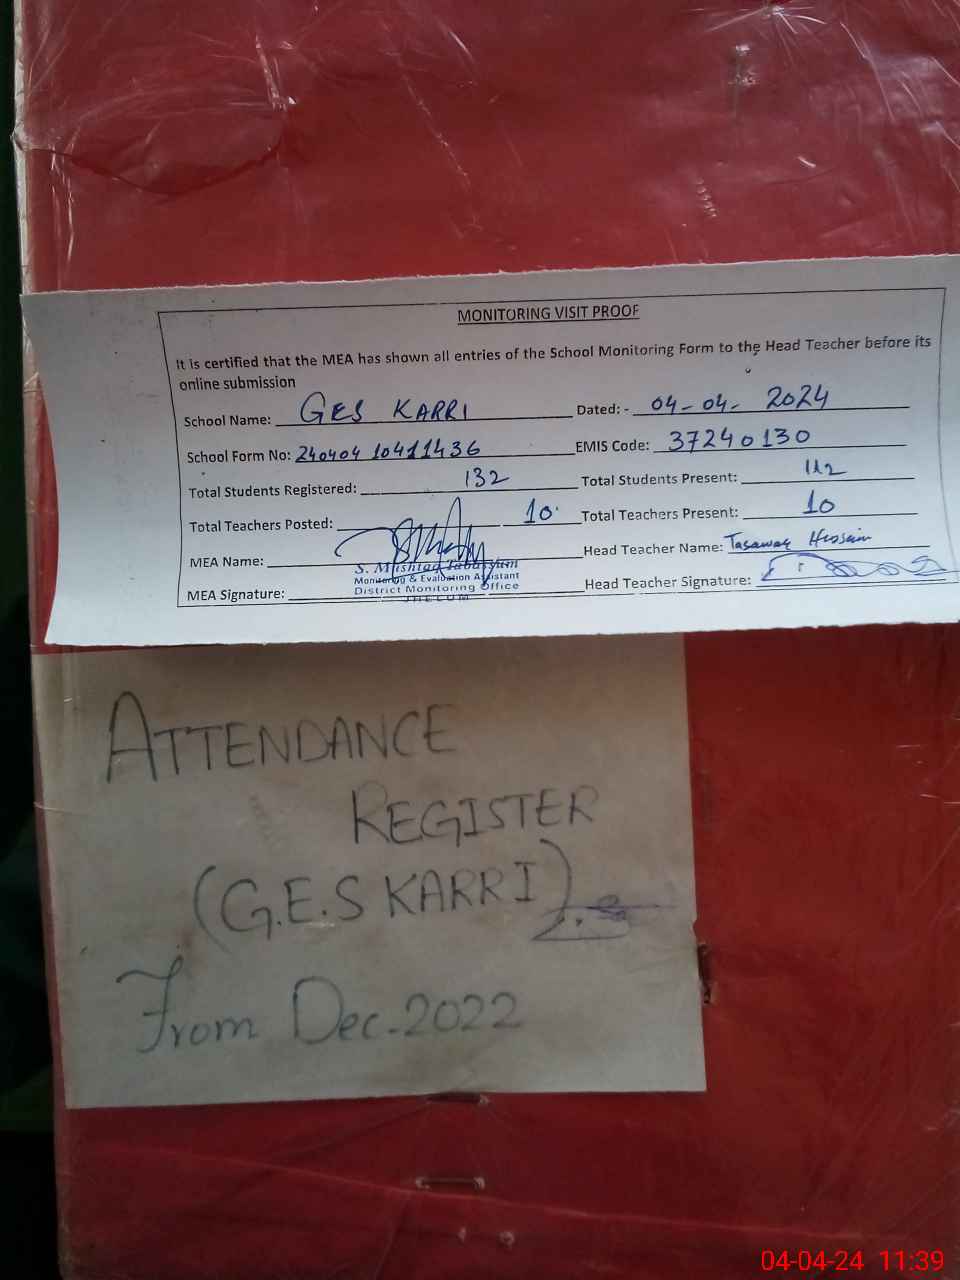 MONITORING VISIT PROOF
It is certified that the MEA has shown all entries of the School Monitoring Form to the Head Teacher before its
online submission
School Name: GES KARRI Dated: - 04-04- 2024
School Form No: 240404 10411436 EMIS Code: 37240130
Total Students Registered: 132 Total Students Present: 112
Total Teachers Posted: 10 Total Teachers Present: 10
MEA Name: Head Teacher Name: Tasawar Hussain
S. Mushtaq Tabassum
Monitoring & Evaluation Assistant
MEA Signature: District Monitoring Office Head Teacher Signature:
JHELUM
ATTENDANCE
REGISTER
(G.E.S KARRI)
From Dec.2022
04-04-24 11:39